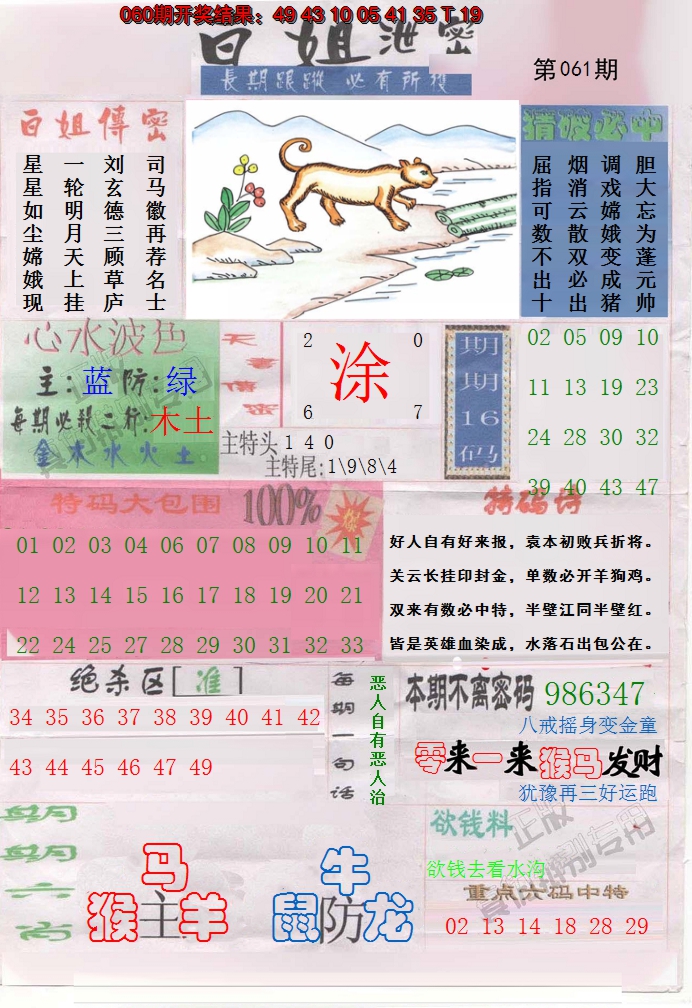 060期开奖结果：49 43 10 05 41 35 T 19
白姐泄密
第061期
長期跟蹤 必有所獲
白姐傳密
司马徽再荐名士
刘玄德三顾草庐
一轮明月天上挂
星星如尘嫦娥现
猜波必中
胆大忘为蓬元帅
调戏嫦娥变成猪
烟消云散双必出
屈指可数不出十
心水波色
主:蓝防:绿
每期必殺二行:木土
金木水火土
2 0
涂
6 7
主特头140
主特尾:1\9\8\4
期期16码
02 05 09 10
11 13 19 23
24 28 30 32
39 40 43 47
特码大包围 100%
01 02 03 04 06 07 08 09 10 11
12 13 14 15 16 17 18 19 20 21
22 24 25 27 28 29 30 31 32 33
特码诗
好人自有好来报，袁本初败兵折将。
关云长挂印封金，单数必开羊狗鸡。
双来有数必中特，半壁江同半壁红。
皆是英雄血染成，水落石出包公在。
绝杀区[准]
34 35 36 37 38 39 40 41 42
43 44 45 46 47 49
每期一句话
恶人自有恶人治
本期不离密码 986347
八戒摇身变金童
零来一来猴马发财
犹豫再三好运跑
每期六肖
马
猴主羊
牛
鼠防龙
欲钱料
欲钱去看水沟
重点六码中特
02 13 14 18 28 29